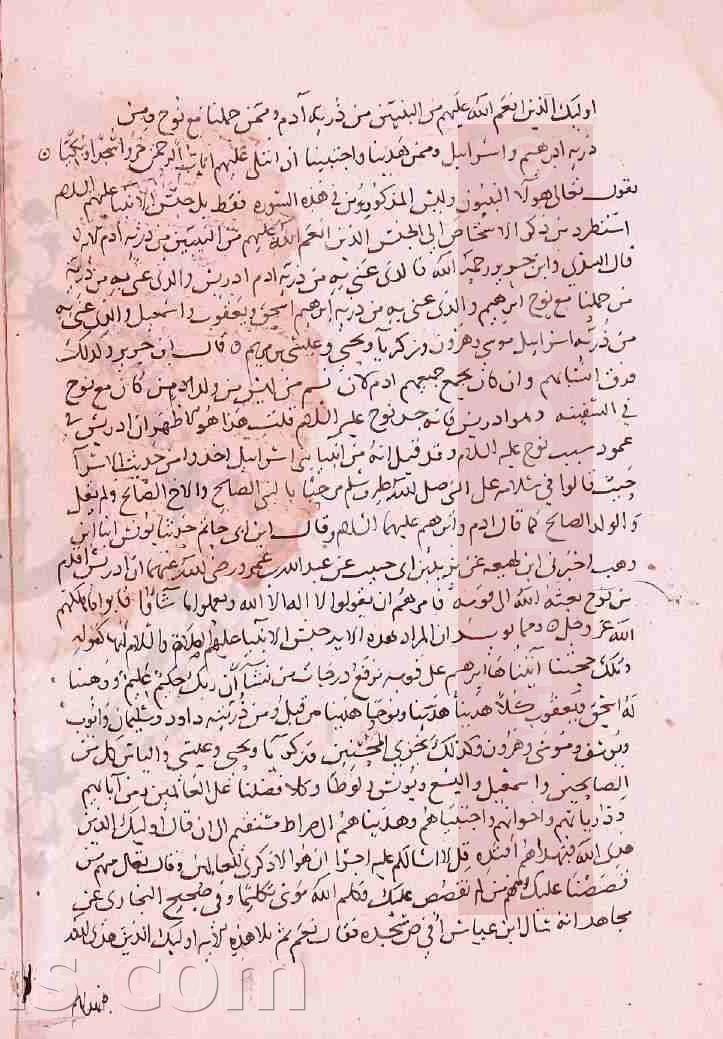 اوليك الذين انعم الله عليهم من النبيين من ذرية آدم وممن حملنا مع نوح ومن
ذرية ابرهيم واسرايل وممن هدينا واجتبينا اذا تتلى عليهم ايات الرحمن خروا سجدا وبكيا
يقول تعالى هولا النبيون وليس المذكورون في هذه السورة فقط بل جنس الانبيا عليهم السلم
استطرد من ذكر الاشخاص الى الجنس الذين انعم الله عليهم من النبيين من ذرية ادم الاية
قال السدي وابن جرير رحمه الله فالذي عنى به من ذرية ادم ادريس والذي عنى به من ذرية
من حملنا مع نوح ابرهيم والذي عنى به من ذرية ابرهيم اسحق ويعقوب واسمعيل والذي عنى به
من ذرية اسرايل موسى وهرون وزكريا ويحيى وعيسى بن مريم قال ابن جرير ولذلك
فرق انسابهم وان كان يجمع جميعهم ادم لان فيهم من ليس من ولد من كان مع نوح
في السفينه وهو ادريس فانه جد نوح عليه السلم قلت هذا هو الاظهر ان ادريس في
عمود نسب نوح عليه السلام وقد قيل انه من انبيا بني اسرايل اخذا من حديث الاسرا
حيث قالوا في سلامه على النبي صلى الله عليه وسلم مرحبا بالنبي الصالح والاخ الصالح ولم يقل
والولد الصالح كما قال ادم وابرهم عليهما السلم وقال ابن ابي حاتم حدثنا يونس انبا ابن
وهب اخبرني ابن لهيعه عن يزيد بن ابي حبيب عن عبد الله بن عمرو رضي الله عنهما ان ادريس اقدم
من نوح بعثه الله الى قومه فامرهم ان يقولوا لا اله الا الله ويعملوا ما شاوا فابوا فاهلكهم
الله عز وجل ومما يويد ان المراد بهذه الاية جنس الانبيا عليهم الصلاة والسلام انها كقوله
وتلك حجتنا آتيناها ابرهيم على قومه نرفع درجات من نشا ان ربك حكيم عليم ووهبنا
له اسحق ويعقوب كلا هدينا ونوحا هدينا من قبل ومن ذريته داود وسليمان وايوب
ويوسف وموسى وهرون وكذلك نجزي المحسنين وزكريا ويحيى وعيسى والياس كل من
الصالحين واسمعيل واليسع ويونس ولوطا وكلا فضلنا على العالمين ومن آبايهم
وذرياتهم واخوانهم واجتبيناهم وهديناهم الى صراط مستقيم الى ان قال اوليك الذين
هدى الله فبهداهم اقتده قل لا اسالكم عليه اجرا ان هو الا ذكرى للعالمين وقال تعالى منهم من
قصصنا عليك ومنهم من لم نقصص عليك وكلم الله موسى تكليما وفي صحيح البخاري عن
مجاهد انه سال ابن عباس أفي ص سجده فقال نعم ثم تلا هذه الاية اوليك الذين هدى الله
فبهداهم
is.com